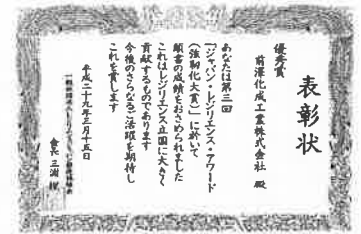 表彰状
優秀賞
前澤化成工業株式会社 殿
あなたは第三回
「ジャパン・レジリエンス・アワード
(強靭化大賞)」に於いて
顕著の成績をおさめられました
これはレジリエンス立国に大きく
貢献するものであります
今後のさらなるご活躍を期待し
これを賞します
平成二十九年三月十五日
会長 三浦